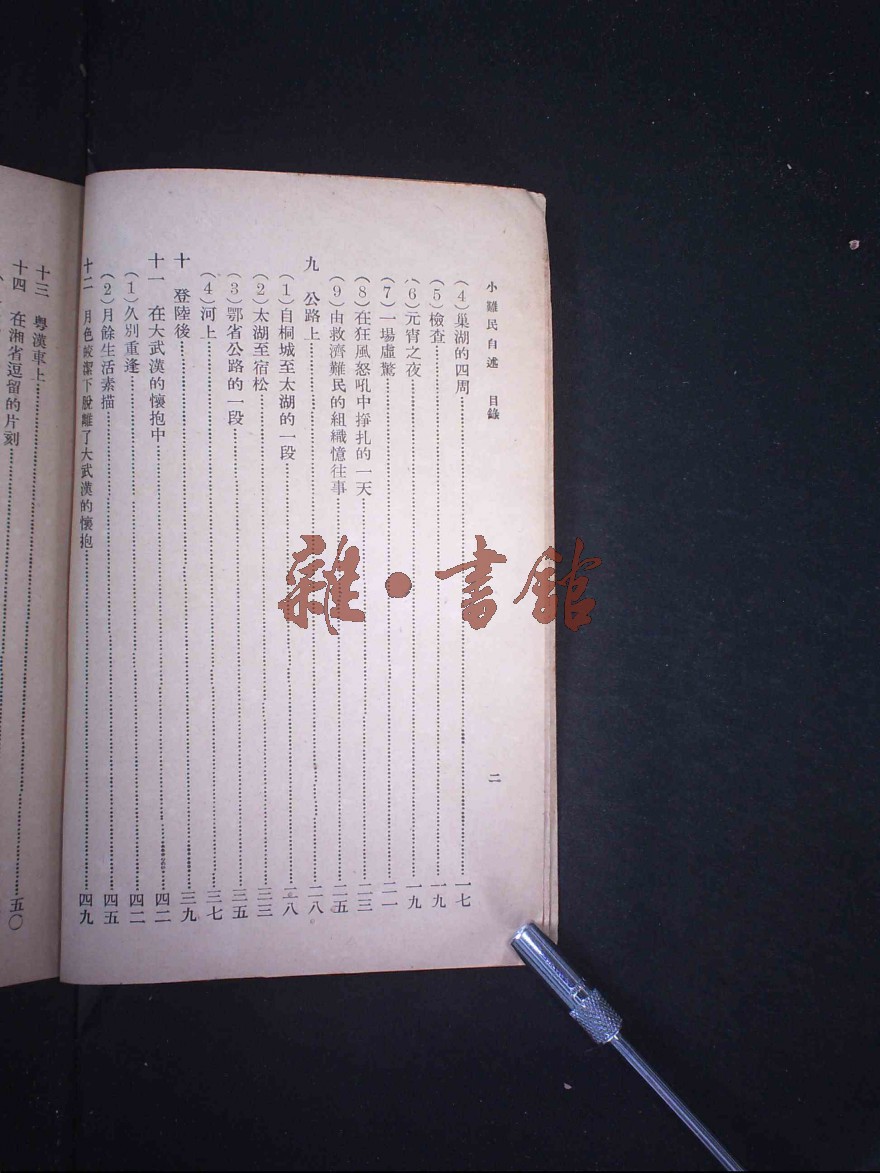 小難民自述 目錄
二
（4）巢湖的四周 一七
（5）檢查 一九
（6）元宵之夜 一九
（7）一場虛驚 二一
（8）在狂風怒吼中掙扎的一天 二三
（9）由救濟難民的組織憶往事 二五
九 公路上 二八
（1）自桐城至太湖的一段 二八
（2）太湖至宿松 三三
（3）鄂省公路的一段 三五
（4）河上 三七
十 登陸後 三九
十一 在大武漢的懷抱中 四二
（1）久別重逢 四二
（2）月餘生活素描 四五
十二 月色皎潔下脫離了大武漢的懷抱 四九
十三 粵漢車上
十四 在湘省逗留的片刻 五〇
雜·書館